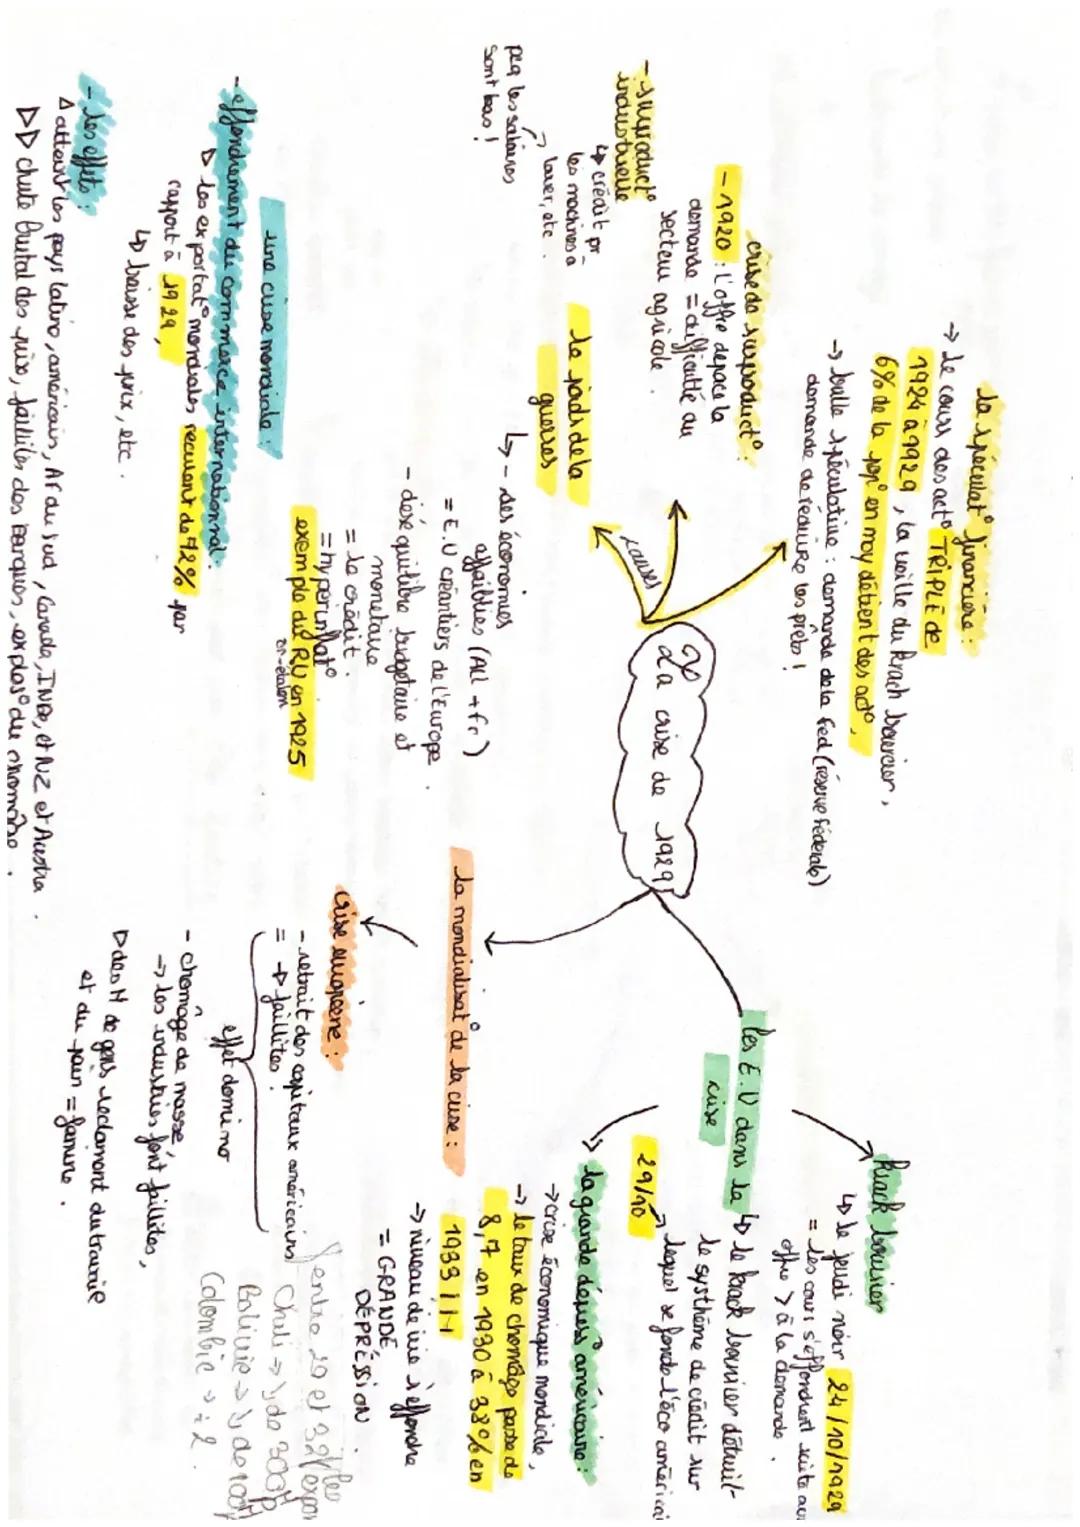 La crise de 1929
causes
la spéculat° financière :
→ Le cours des act° TRIPLE de
1924 à 1929, la veille du krach boursier,
6% de la pop° en moy détient des act°,
→ bulle spéculative : demande de la Fed (réserve fédérale)
demande de réduire les prêts !
crise de surproduct° :
- 1920 : L'offre dépace la
demande = difficulté au
secteur agricole.
- surproduct°
industrielle
↳ crédit pr
les machines à
laver, etc.
pcq les salaires
sont bas !
le poids de la
guerres
↳ - des économies
affaiblies (All + fr)
= E.U créantiers de l'Europe.
- deséquilibre budgetaire et
monetaire
= le crédit.
= hyperinflat°
exemple du RU en 1925
or-étalon
les E.U dans la
crise
Krach boursier
↳ le jeudi noir 24/10/1929
= les cours s'effondrent suite au
offre > à la demande.
↳ le krack boursier détruit
le systhème de crédit sur
lequel se fonde l'éco américai
29/10
la grande dépress° américaine :
→ crise économique mondiale,
→ le taux de chomâge passe de
8,7 en 1930 à 38% en
1933 !!!
→ niveau de vie s'effondre
= GRANDE
DÉPRÉSSION.
la mondialisat° de la crise :
crise européene :
- retrait des capitaux américains
= → faillites.
effet domino
- chomâge de masse,
→ les industries font faillites,
▷ des M de gens réclament du travail
et du pain = famine.
entre 29 et 32 les expor
Chili → ↘ de 300%
Bolivie → ↘ de 100%
Colombie → ÷ 2.
une crise mondiale :
- effondrement du commerce internationnal.
▷ les exportat° mondiales reculent de 42% par
rapport à 1929,
↳ baisse des prix, etc.
- les effets :
△ atteint les pays latino, américains, Af du sud, Canada, INDE, et NZ et Austra.
▷▷ chute brutal des prix, faillites des banques, explos° du chomâge.